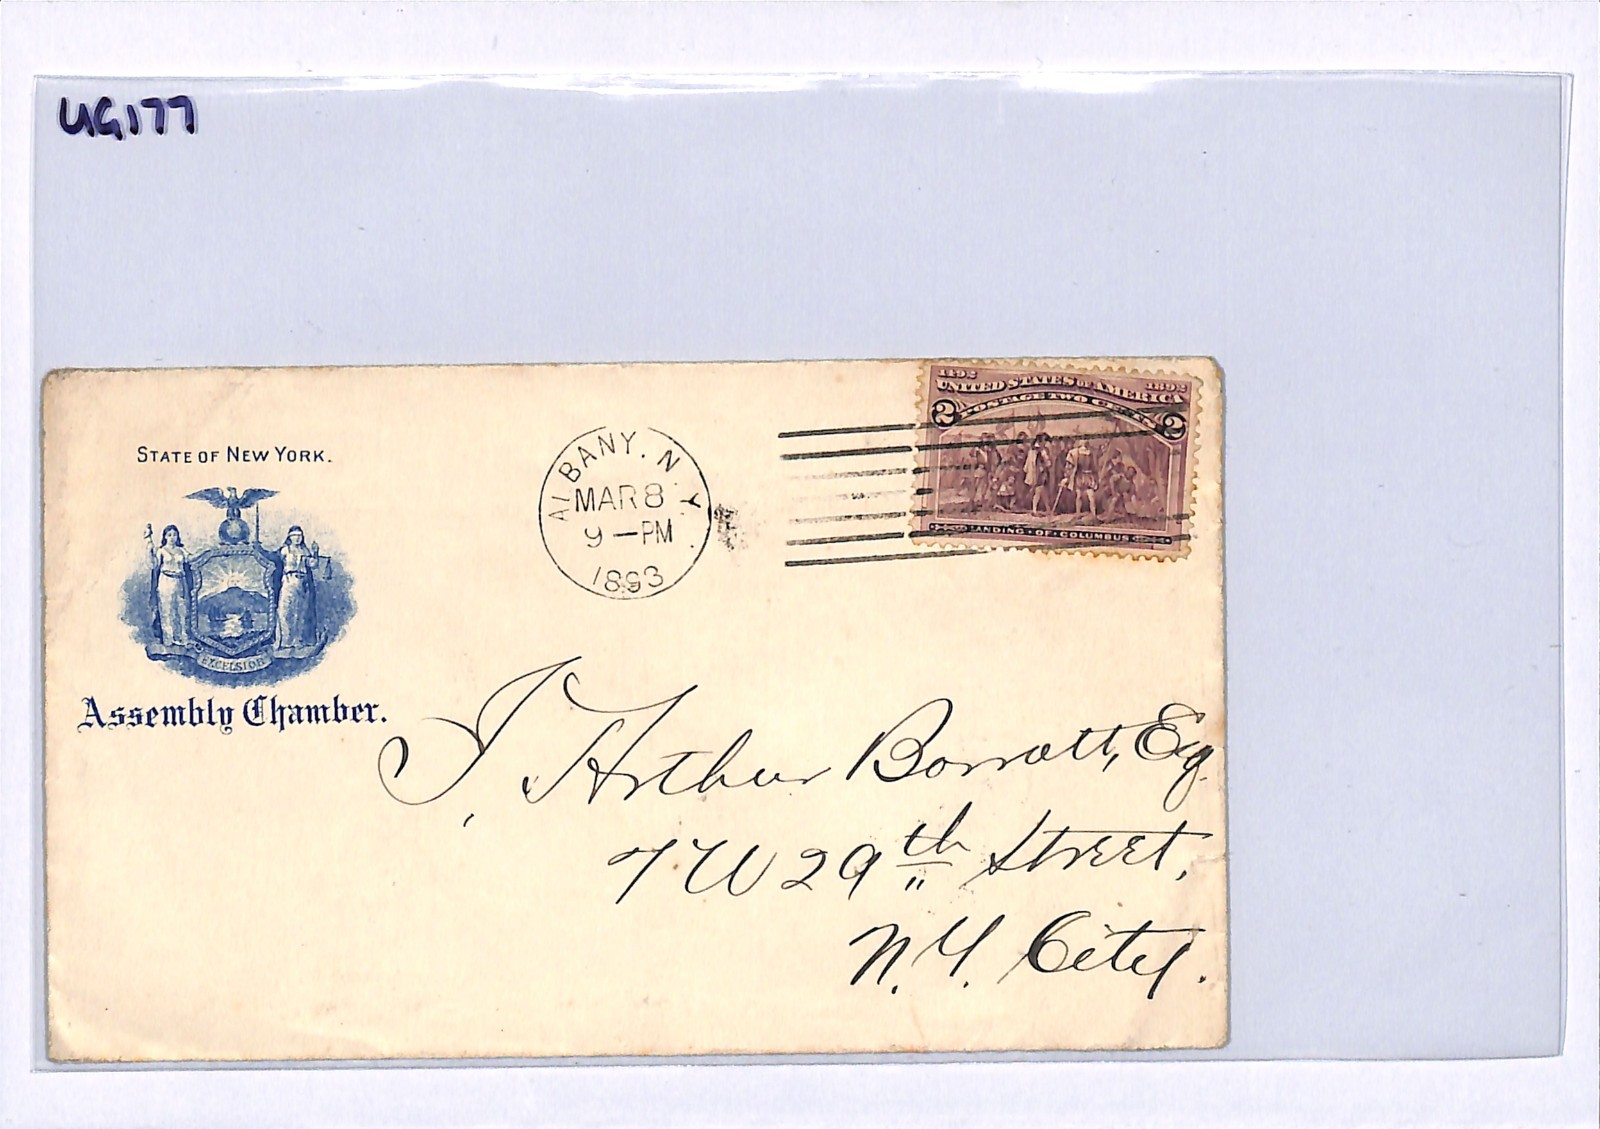 UG177
STATE OF NEW YORK.
EXCELSIOR
Assembly Chamber.
ALBANY. N Y.
MAR 8
9-PM
1893
1492 1892
UNITED STATES OF AMERICA
2 POSTAGE TWO CENTS 2
LANDING OF COLUMBUS
J. Arthur Barratt, Esq.
7 W 29th Street,
N.Y. City.